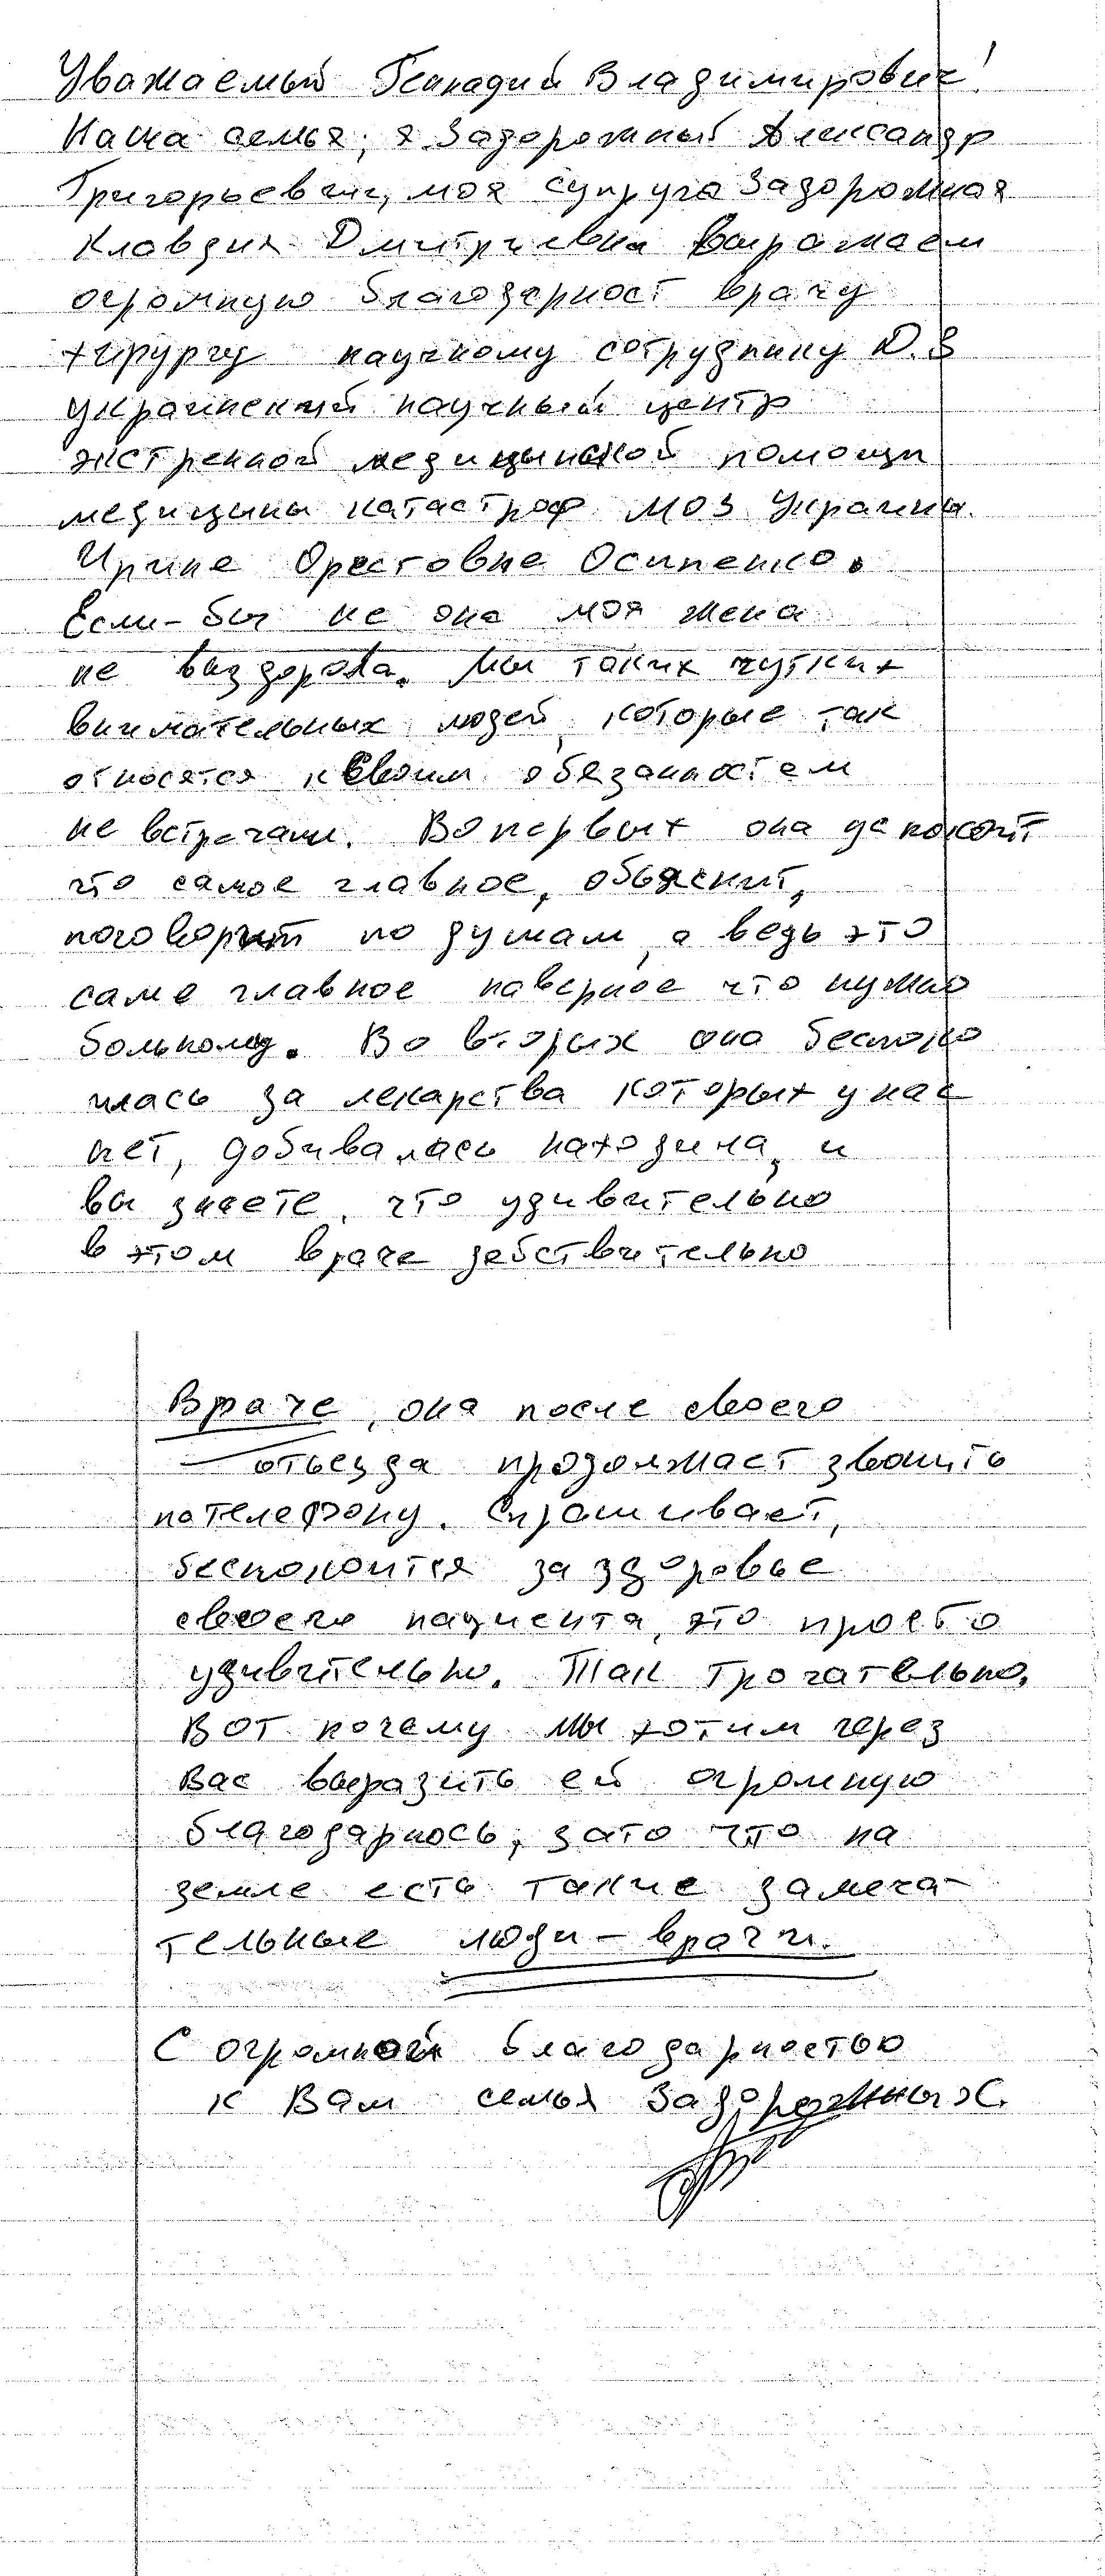 Уважаемый Геннадий Владимирович!
Наша семья, я Задорожный Александр
Григорьевич, моя супруга Задорожная
Клавдия Дмитриевна выражаем
огромную благодерност врачу
хирургу научному сотруднику Д.З
украинский научный центр
экстренной медицынской помощи
медицины катастроф МОЗ Украины.
Ирине Орестовне Осипенко.
Если-бы не она моя жена
не выздорова. Мы таких чутких
внимательных людей, которые так
относятся к своим обязанностем
не встречали. Вопервых она успокоит
что самое главное, объяснит,
поговорит по душам, а ведь это
саме главное наверное что нужно
больному. Во вторых она беспоко
илась за лекарства которых у нас
нет, добивалась находила, и
вы знаете, что удивительно
в этом враче действительно
Враче, она после своего
отьезда продолжает звонить
по телефону. Спрашивает,
беспокоится за здоровье
своего пациента, это просто
удивительно. Так трогательно.
Вот почему мы хотим через
Вас выразить ей огромную
благодарнось, зато что на
земле есть такие замеча-
тельные люди - врачи.
С огромной благодарностью
к Вам семья Задорожных.